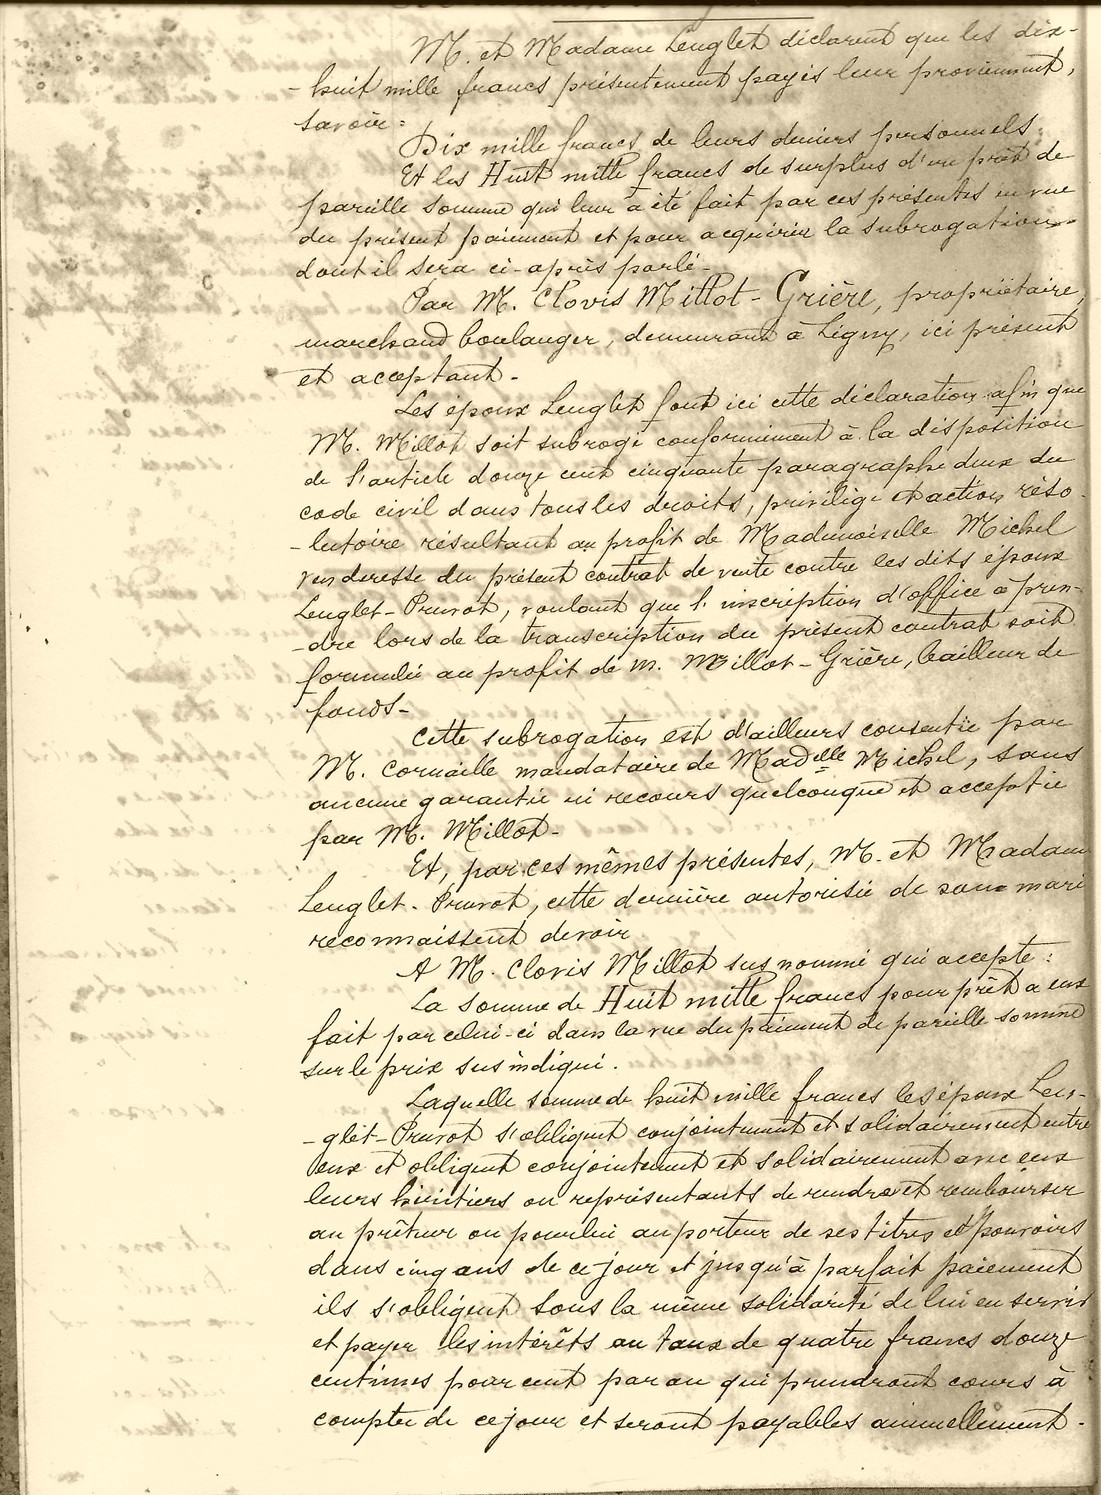 M. et Madame Lenglet déclarent que les dix-
-huit mille francs présentement payés leur proviennent,
savoir:
Dix mille francs de leurs deniers personnels.
Et les Huit mille francs de surplus d'un prêt de
pareille somme qui leur a été fait par ces présentes en vue
du présent paiement et pour acquérir la subrogation
dont il sera ci-après parlé-
Par M. Clovis Millot-Grière, propriétaire,
marchand boulanger, demeurant à Ligny, ici présent
et acceptant.-
Les époux Lenglet font ici cette déclaration afin que
M. Millot soit subrogé conformément à la disposition
de l'article douze cent cinquante paragraphe deux du
code civil dans tous les droits, privilège et action réso-
-lutoire résultant au profit de Mademoiselle Michel
venderesse du présent contrat de vente contre les dits époux
Lenglet-Pruvot, voulant que l'inscription d'office à pren-
-dre lors de la transcription du présent contrat soit
formulée au profit de M. Millot-Grière, bailleur de
fonds-
Cette subrogation est d'ailleurs consentie par
M. Cornaille mandataire de Madelle Michel, sans
aucune garantie ni recours quelconque et acceptée
par M. Millot-
Et, par ces mêmes présentes, M. et Madame
Lenglet-Pruvot, cette dernière autorisée de son mari
reconnaissent devoir
A M. Clovis Millot sus nommé qui accepte:
La somme de Huit mille francs pour prêt à eux
fait par celui-ci dans la vue du paiement de pareille somme
sur le prix sus indiqué.
Laquelle somme de huit mille francs les époux Len-
-glet-Pruvot s'obligent conjointement et solidairement entre
eux et obligent conjointement et solidairement avec eux
leurs héritiers ou représentants de rendre et rembourser
au prêteur ou pour lui au porteur de ses titres et pouvoirs
dans cinq ans de ce jour et jusqu'à parfait paiement
ils s'obligent sous la même solidarité de lui en servir
et payer les intérêts au taux de quatre francs douze
centimes pour cent par an qui prendront cours à
compter de ce jour et seront payables annuellement-